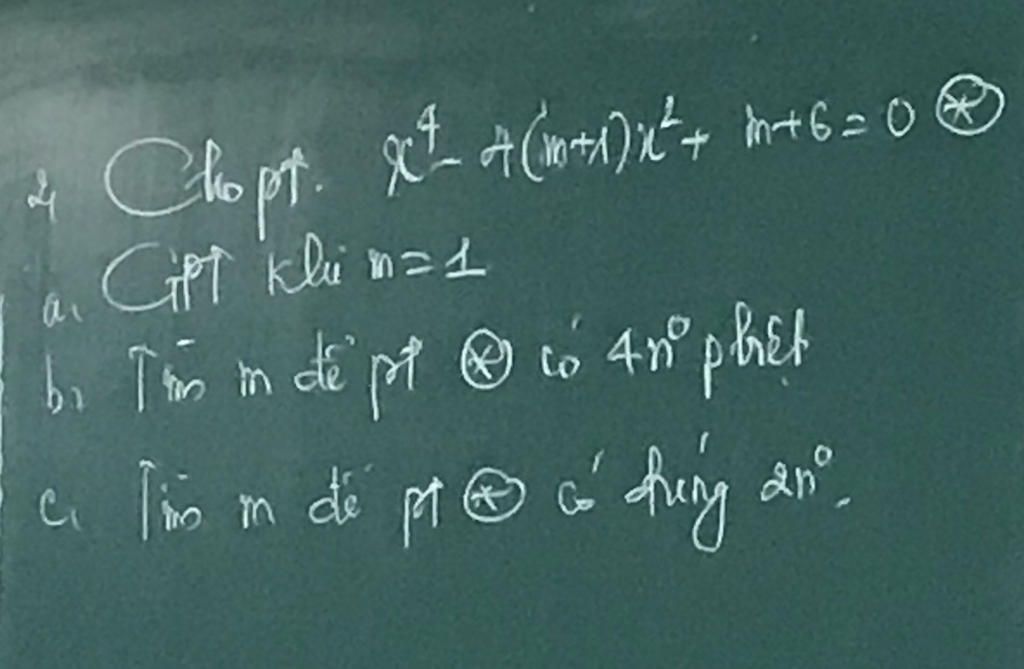 2, Cho pt. x⁴ - 4(m+1)x² + m+6 = 0 ⊛
a, GPT khi m = 1
b, Tìm m để pt ⊛ có 4n⁰ pbiệt
c, Tìm m để pt ⊛ có đúng 2n⁰.